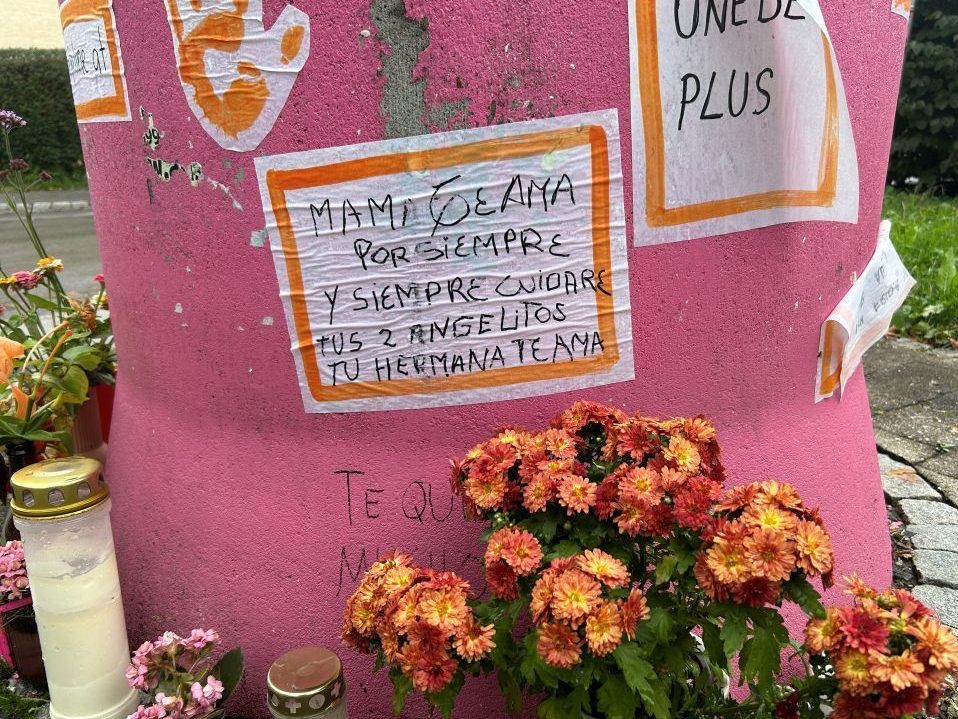 UNE DE
PLUS
MAMI TE AMA
POR SIEMPRE
Y SIEMPRE CUIDARE
TUS 2 ANGELITOS
TU HERMANA TE AMA
TE